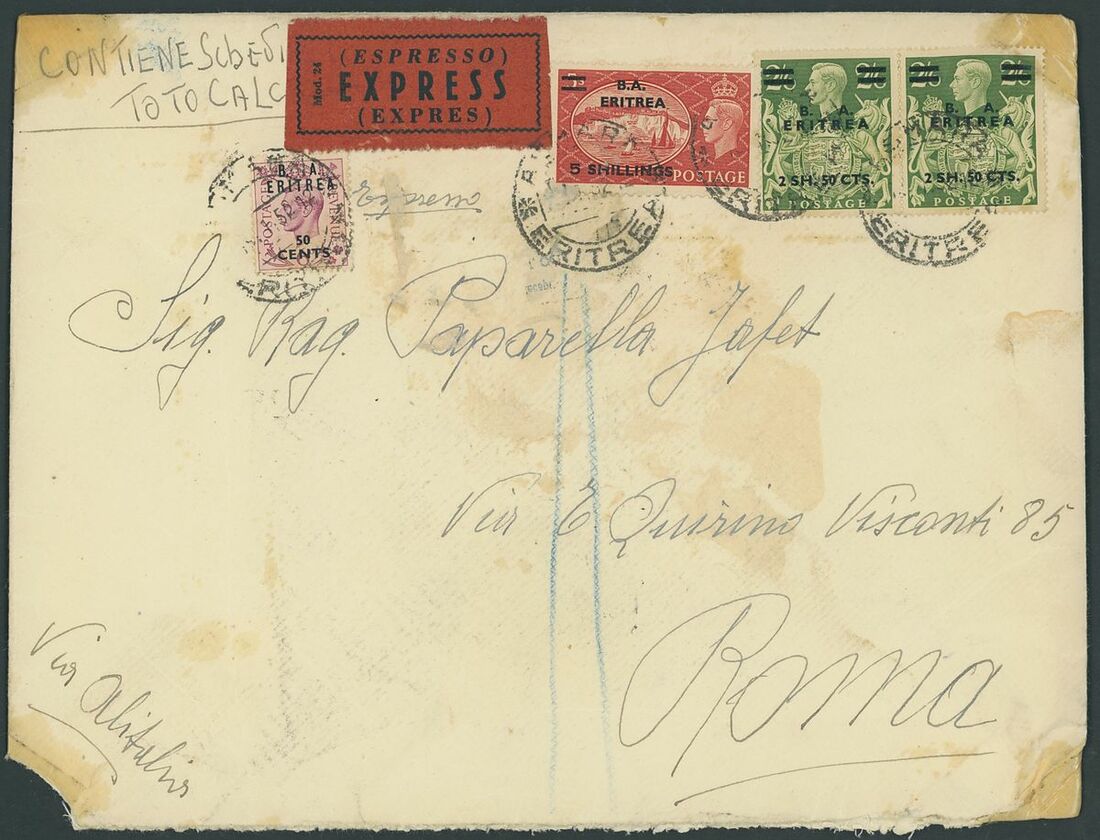 CONTIENE SCHEDI
TOTO CALC
Mod. 24
(ESPRESSO)
EXPRESS
(EXPRES)
B.A.
ERITREA
5 SHILLINGS
POSTAGE
2/6 2/6
B. A.
ERITREA
2 SH. 50 CTS.
POSTAGE
2/6 2/6
B. A.
ERITREA
2 SH. 50 CTS.
POSTAGE
B. A.
ERITREA
50
CENTS
POSTAGE
REVENUE
ERITREA
ERITREA
Sig. Rag. Paparella Jafet
Via E. Quirino Visconti 85
Roma
Via Alitalia